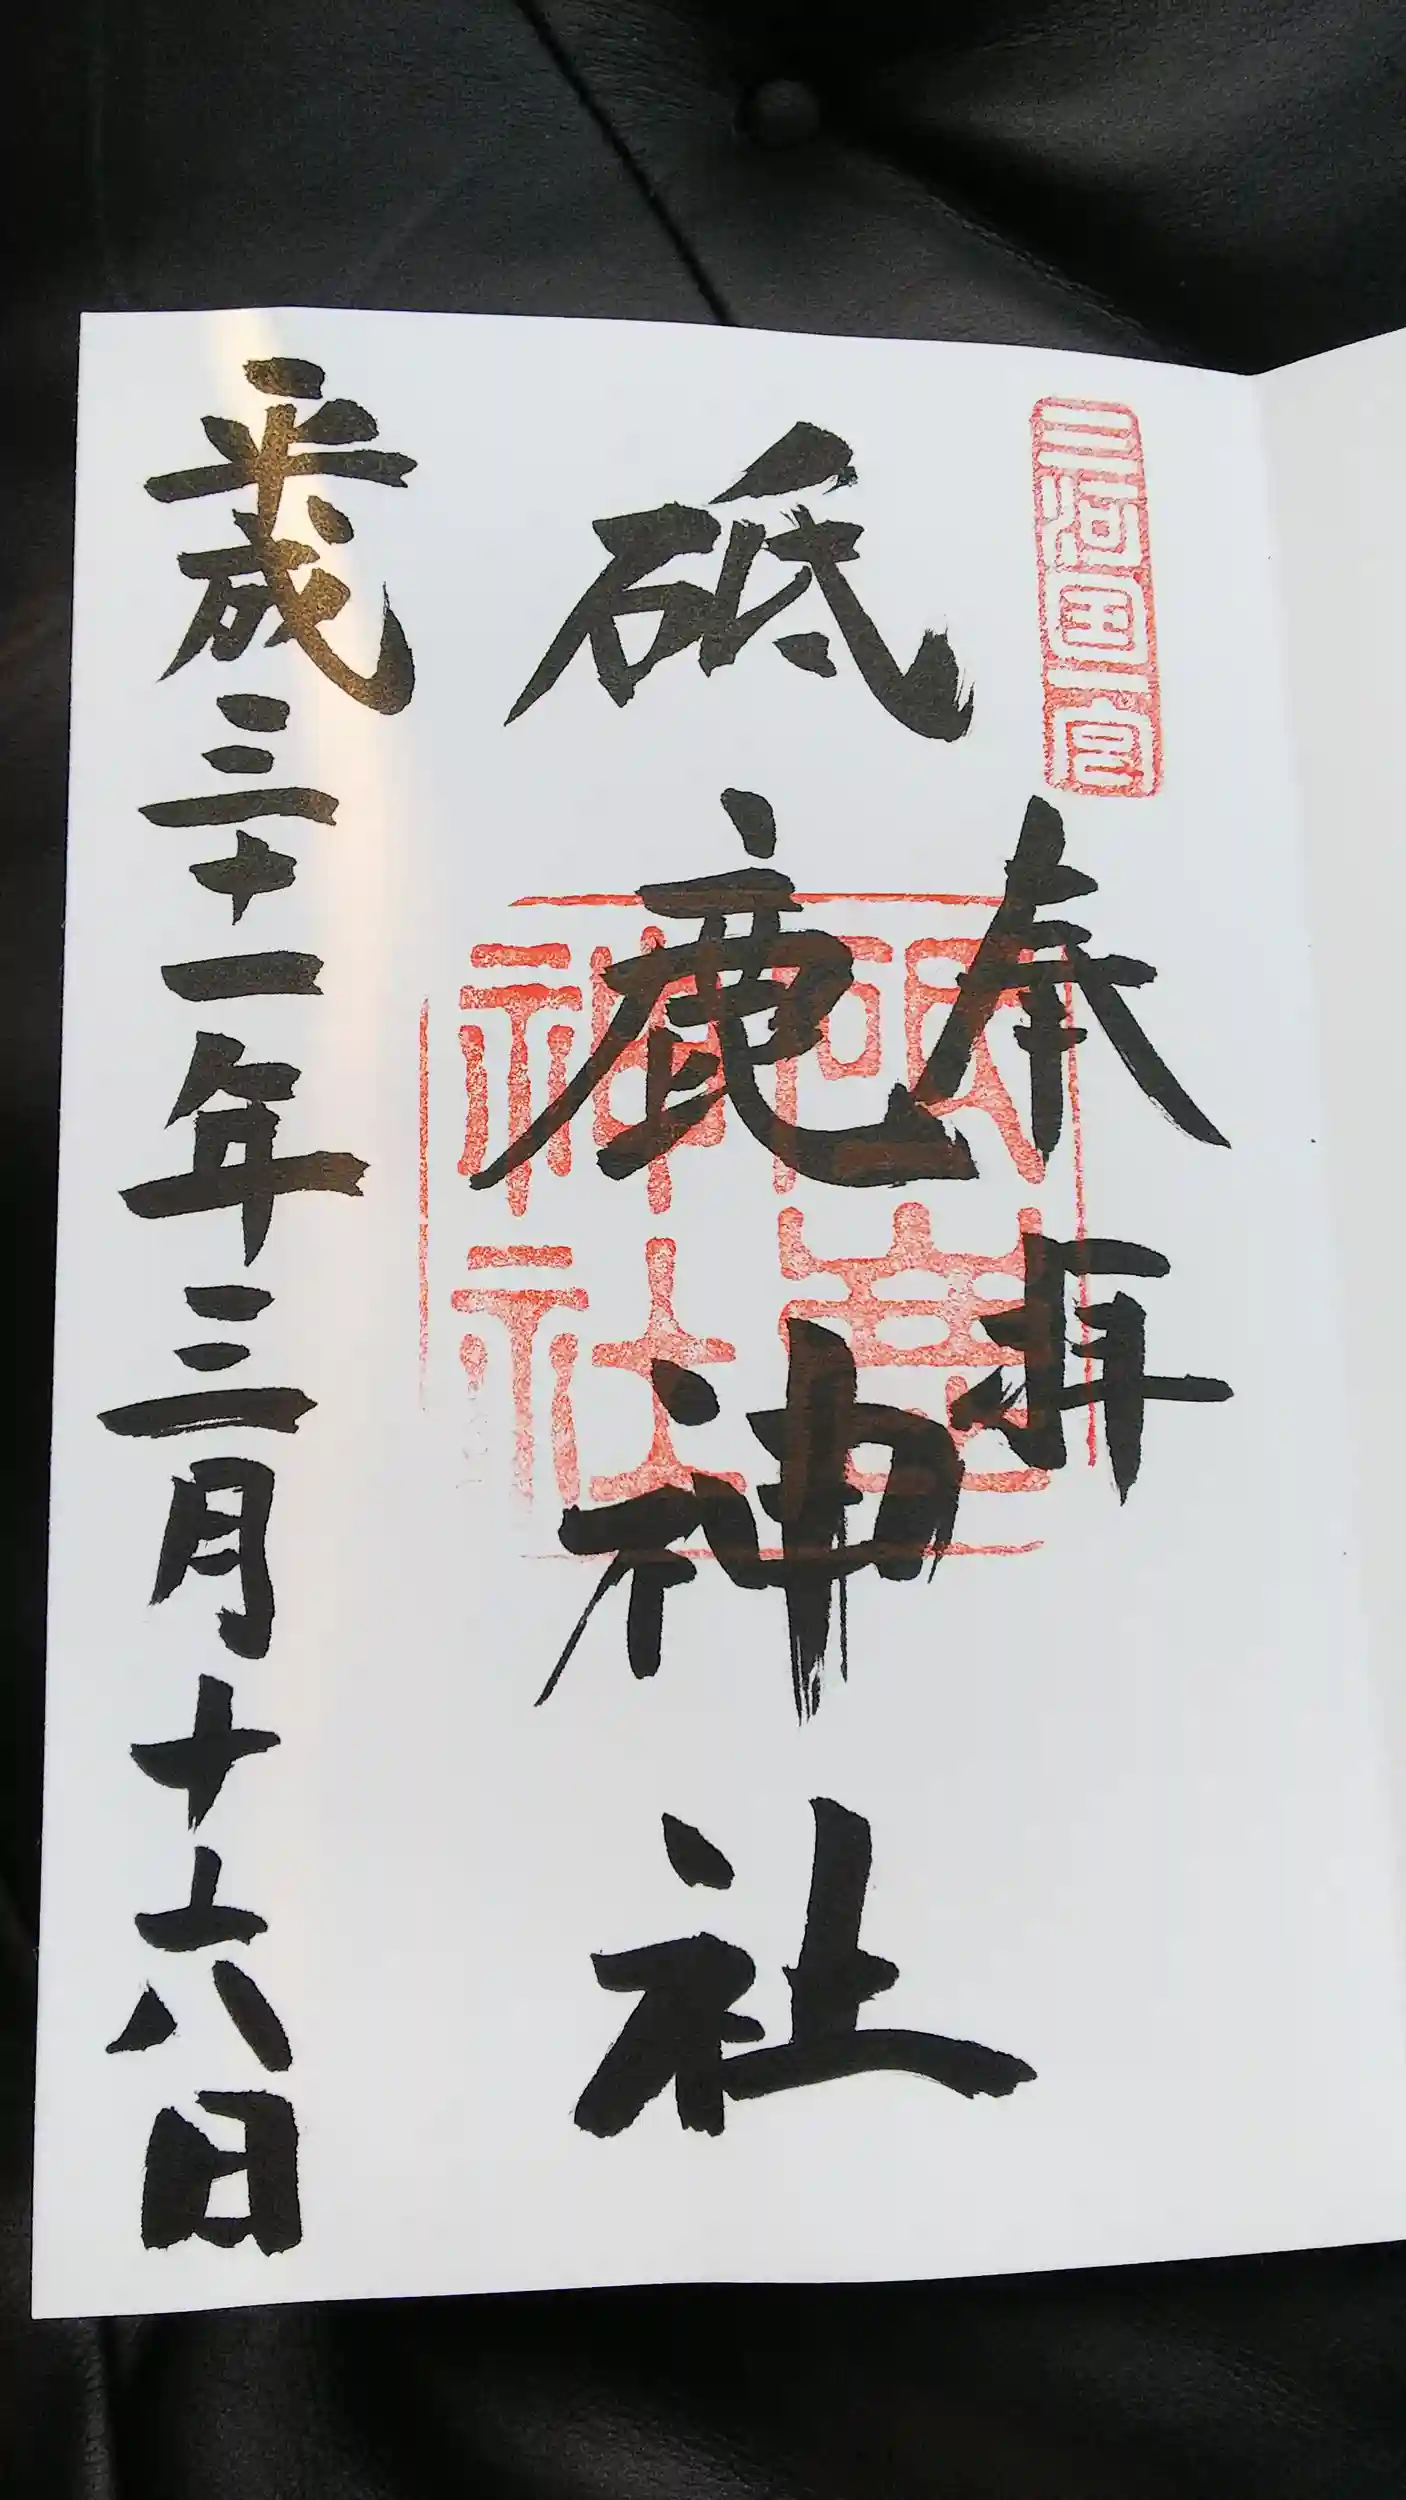 三河国一宮
奉拝
砥鹿神社
砥鹿神社
平成三十一年三月十六日